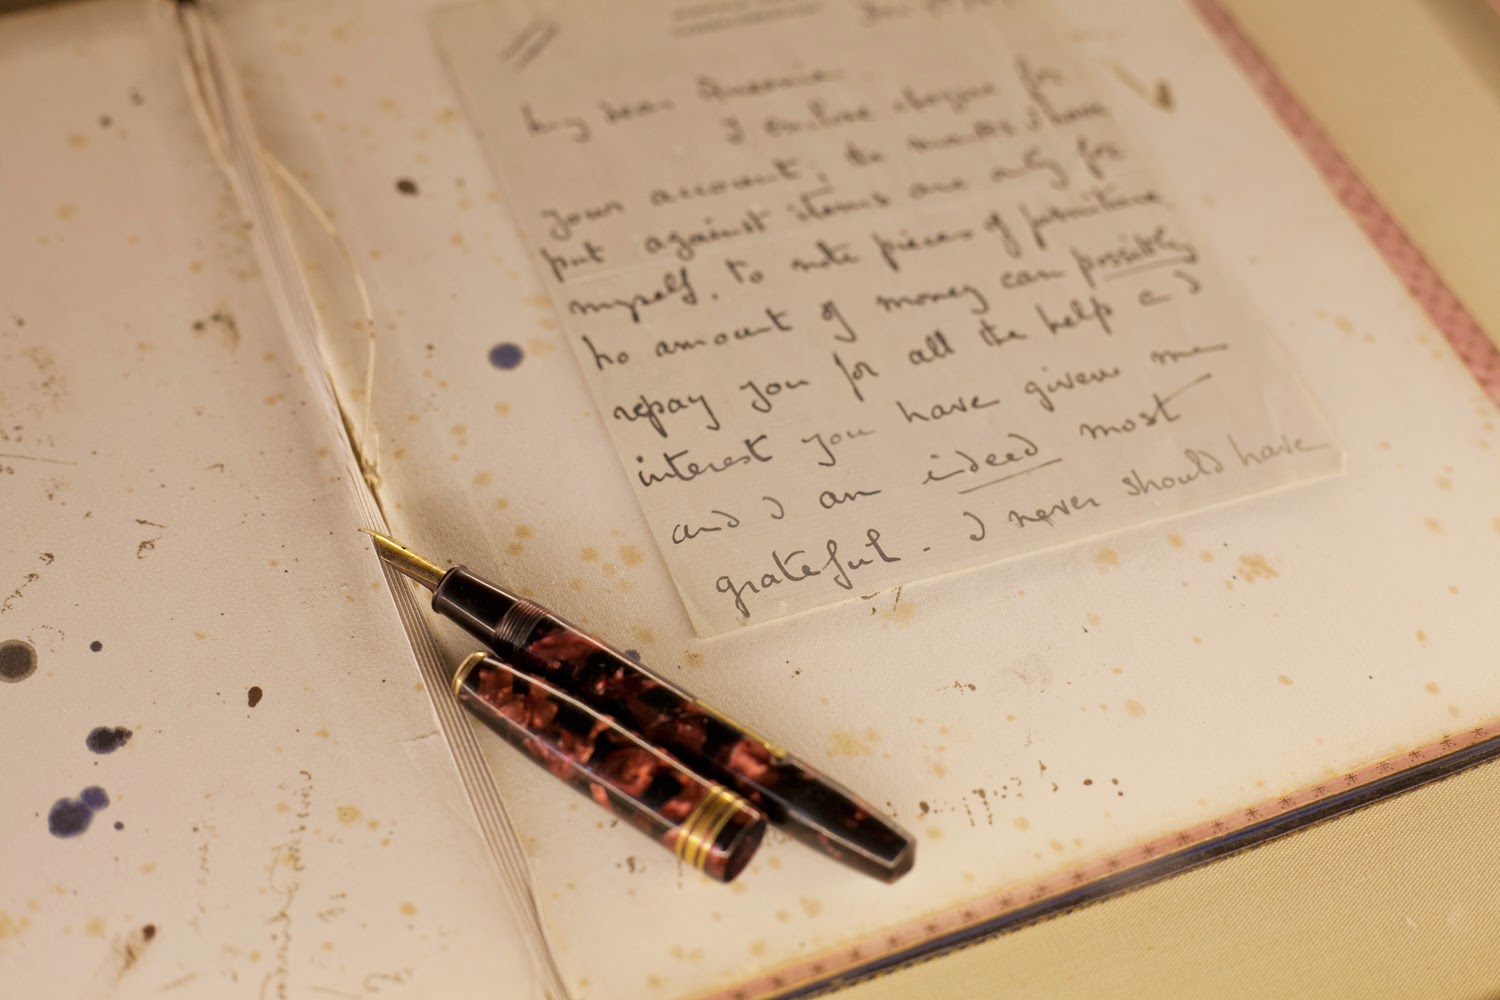 My dear Queenie
I enclose cheque for
your account; the marks I have
put against items are only for
myself, to note pieces of furniture
no amount of money can possibly
repay you for all the help and
interest you have given me
and I am indeed most
grateful. I never should have